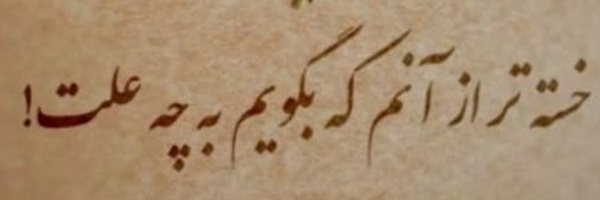 خسته تر از آنم که بگویم به چه علت!